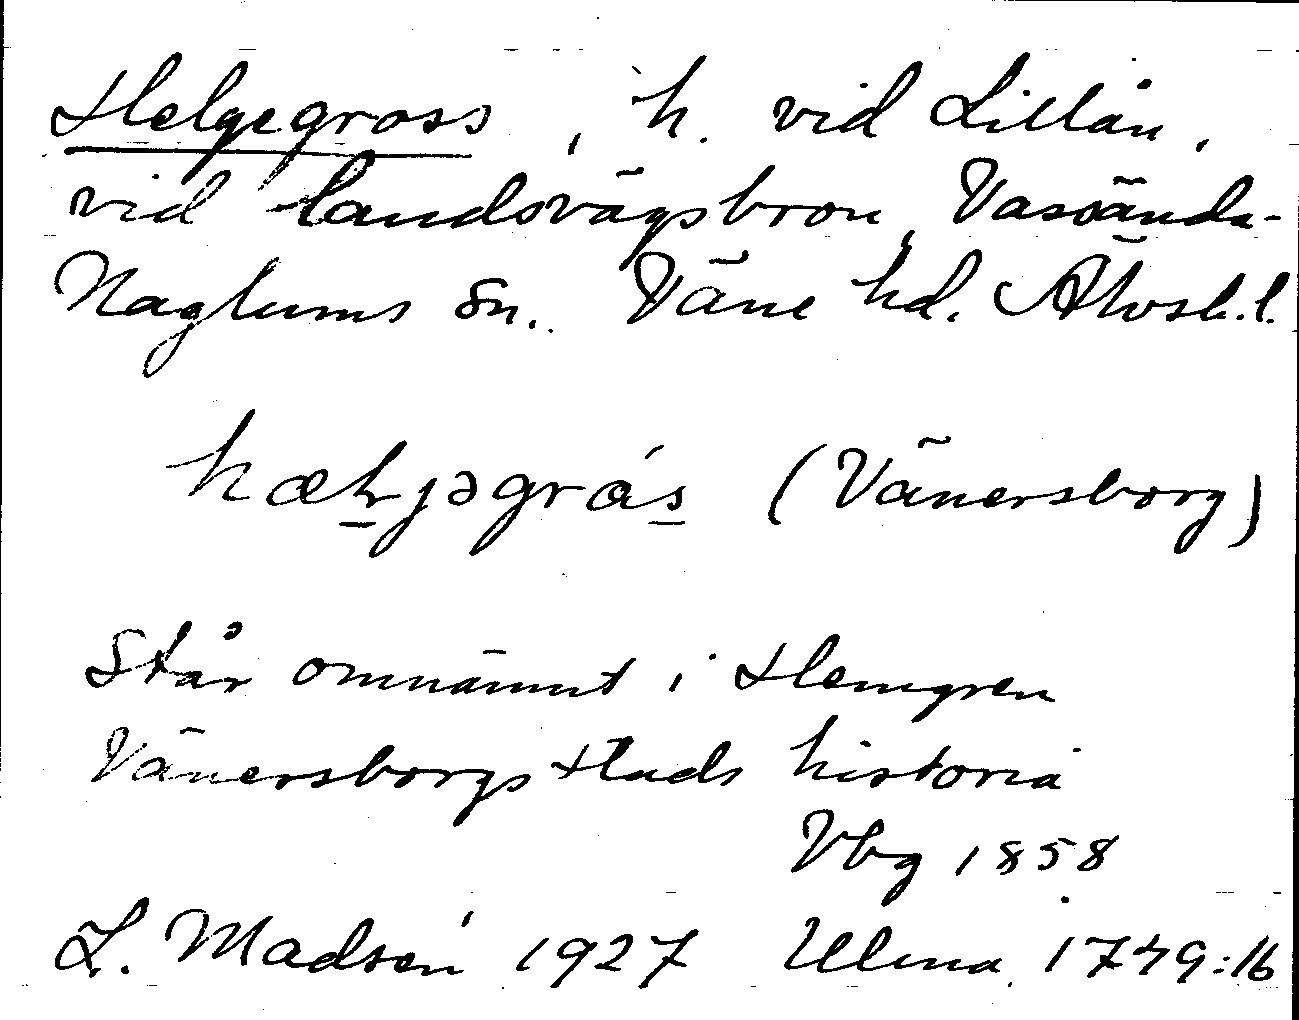 Helgegross, h. vid Lillån,
vid landsvägsbron, Vassända-
Naglums sn. Väne hd. Älvsb. l.
(Vänersborg)
Står omnämnt i Hemgren
Vänersborgs stads historia
Vbg 1858
L. Madsén 1927 Ulma 1749:16